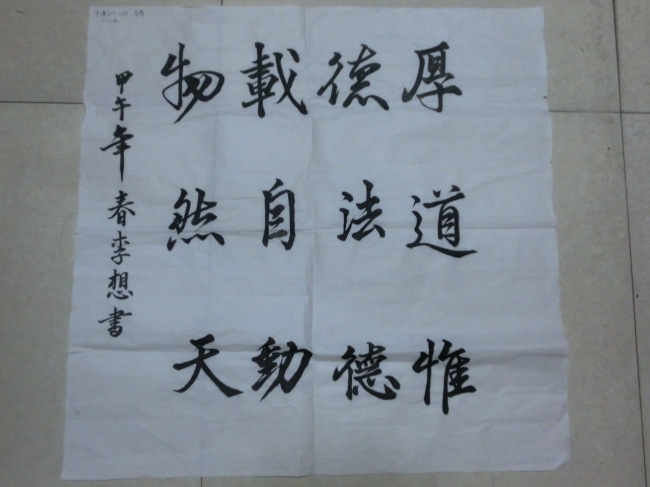 厚德載物
道法自然
惟德動天
甲午年春李想書